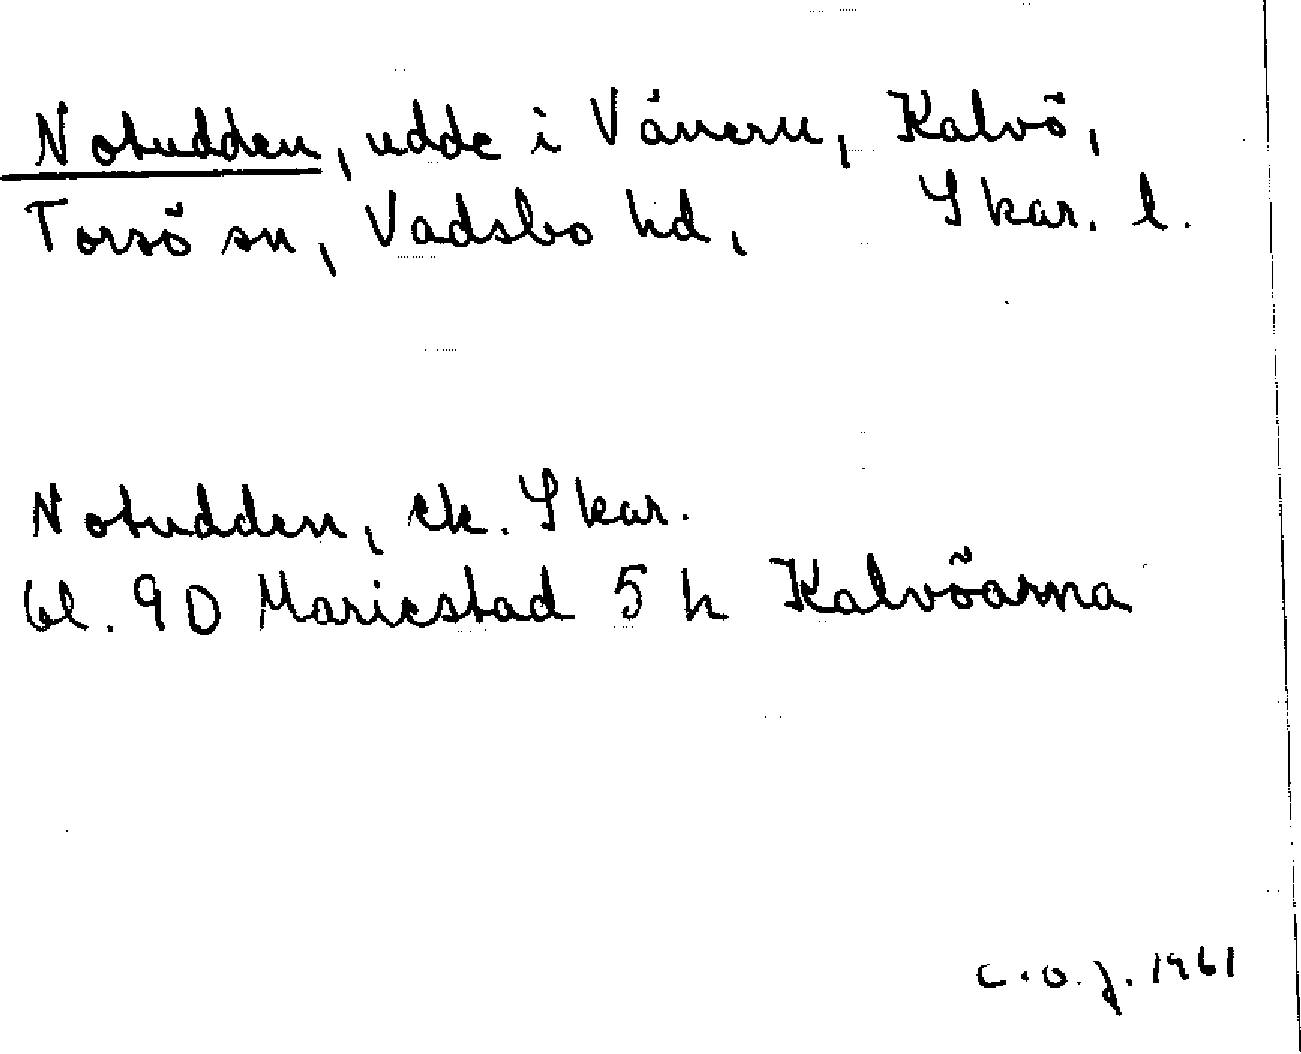 Notudden, udde i Vänern, Kalvö,
Torsö sn, Vadsbo hd, Skar. l.
Notudden, ek. Skar.
bl. 90 Mariestad 5 h Kalvöarna
C.O.J. 1961